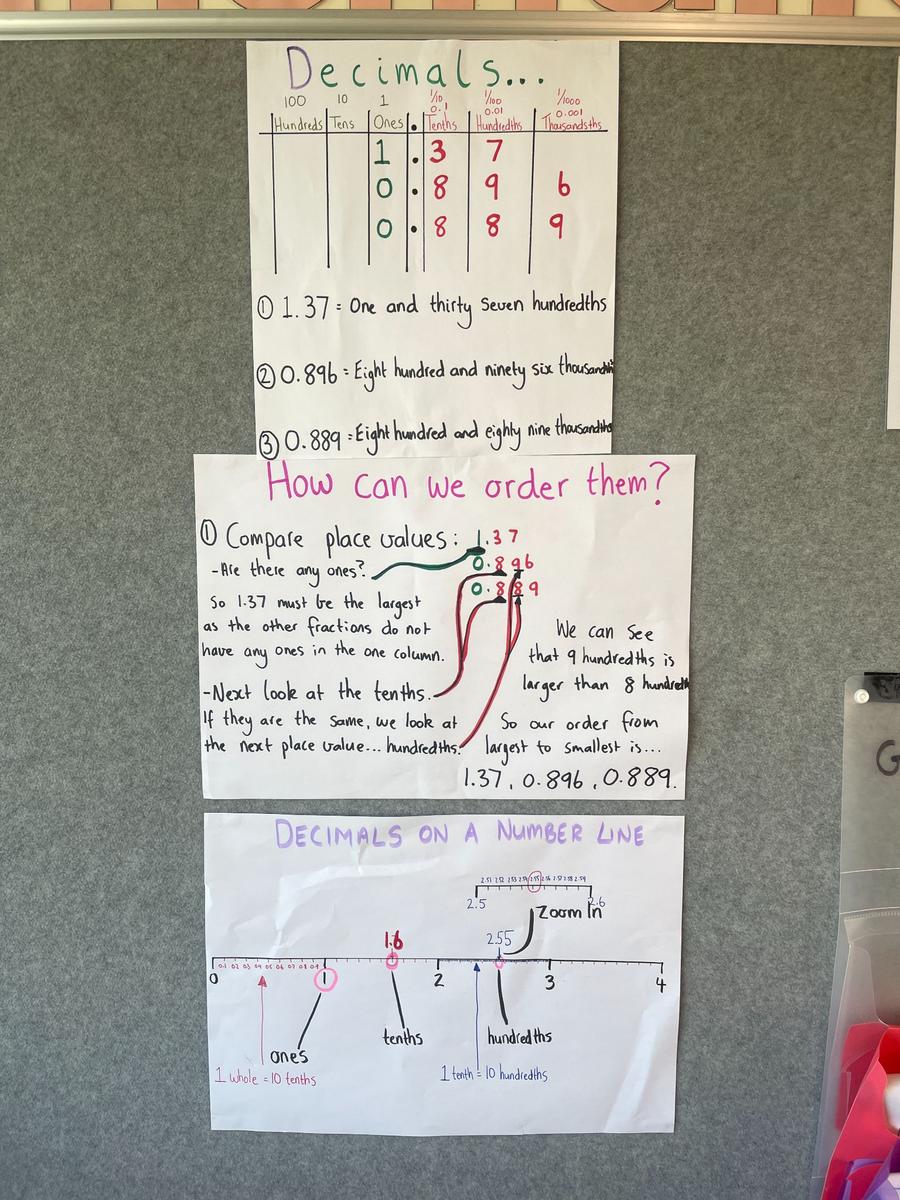 Decimals...
100 10 1 1/10 1/100 1/1000
0.1 0.01 0.001
Hundreds Tens Ones . Tenths Hundredths Thousandsths
1 . 3 7
0 . 8 9 6
0 . 8 8 9
① 1.37 = One and thirty seven hundredths
② 0.896 = Eight hundred and ninety six thousandths
③ 0.889 = Eight hundred and eighty nine thousandths
How can we order them?
① Compare place values: 1.37
- Are there any ones? 0.896
0.889
So 1.37 must be the largest
as the other fractions do not
have any ones in the one column.
- Next look at the tenths.
If they are the same, we look at
the next place value... hundredths.
We can see
that 9 hundredths is
larger than 8 hundredth
So our order from
largest to smallest is...
1.37, 0.896, 0.889.
DECIMALS ON A NUMBER LINE
2.51 2.52 2.53 2.54 2.55 2.56 2.57 2.58 2.59
2.5 2.6
Zoom In
1.6 2.55
0.1 0.2 0.3 0.4 0.5 0.6 0.7 0.8 0.9
0 1 2 3 4
ones tenths hundredths
1 whole = 10 tenths 1 tenth = 10 hundredths
G